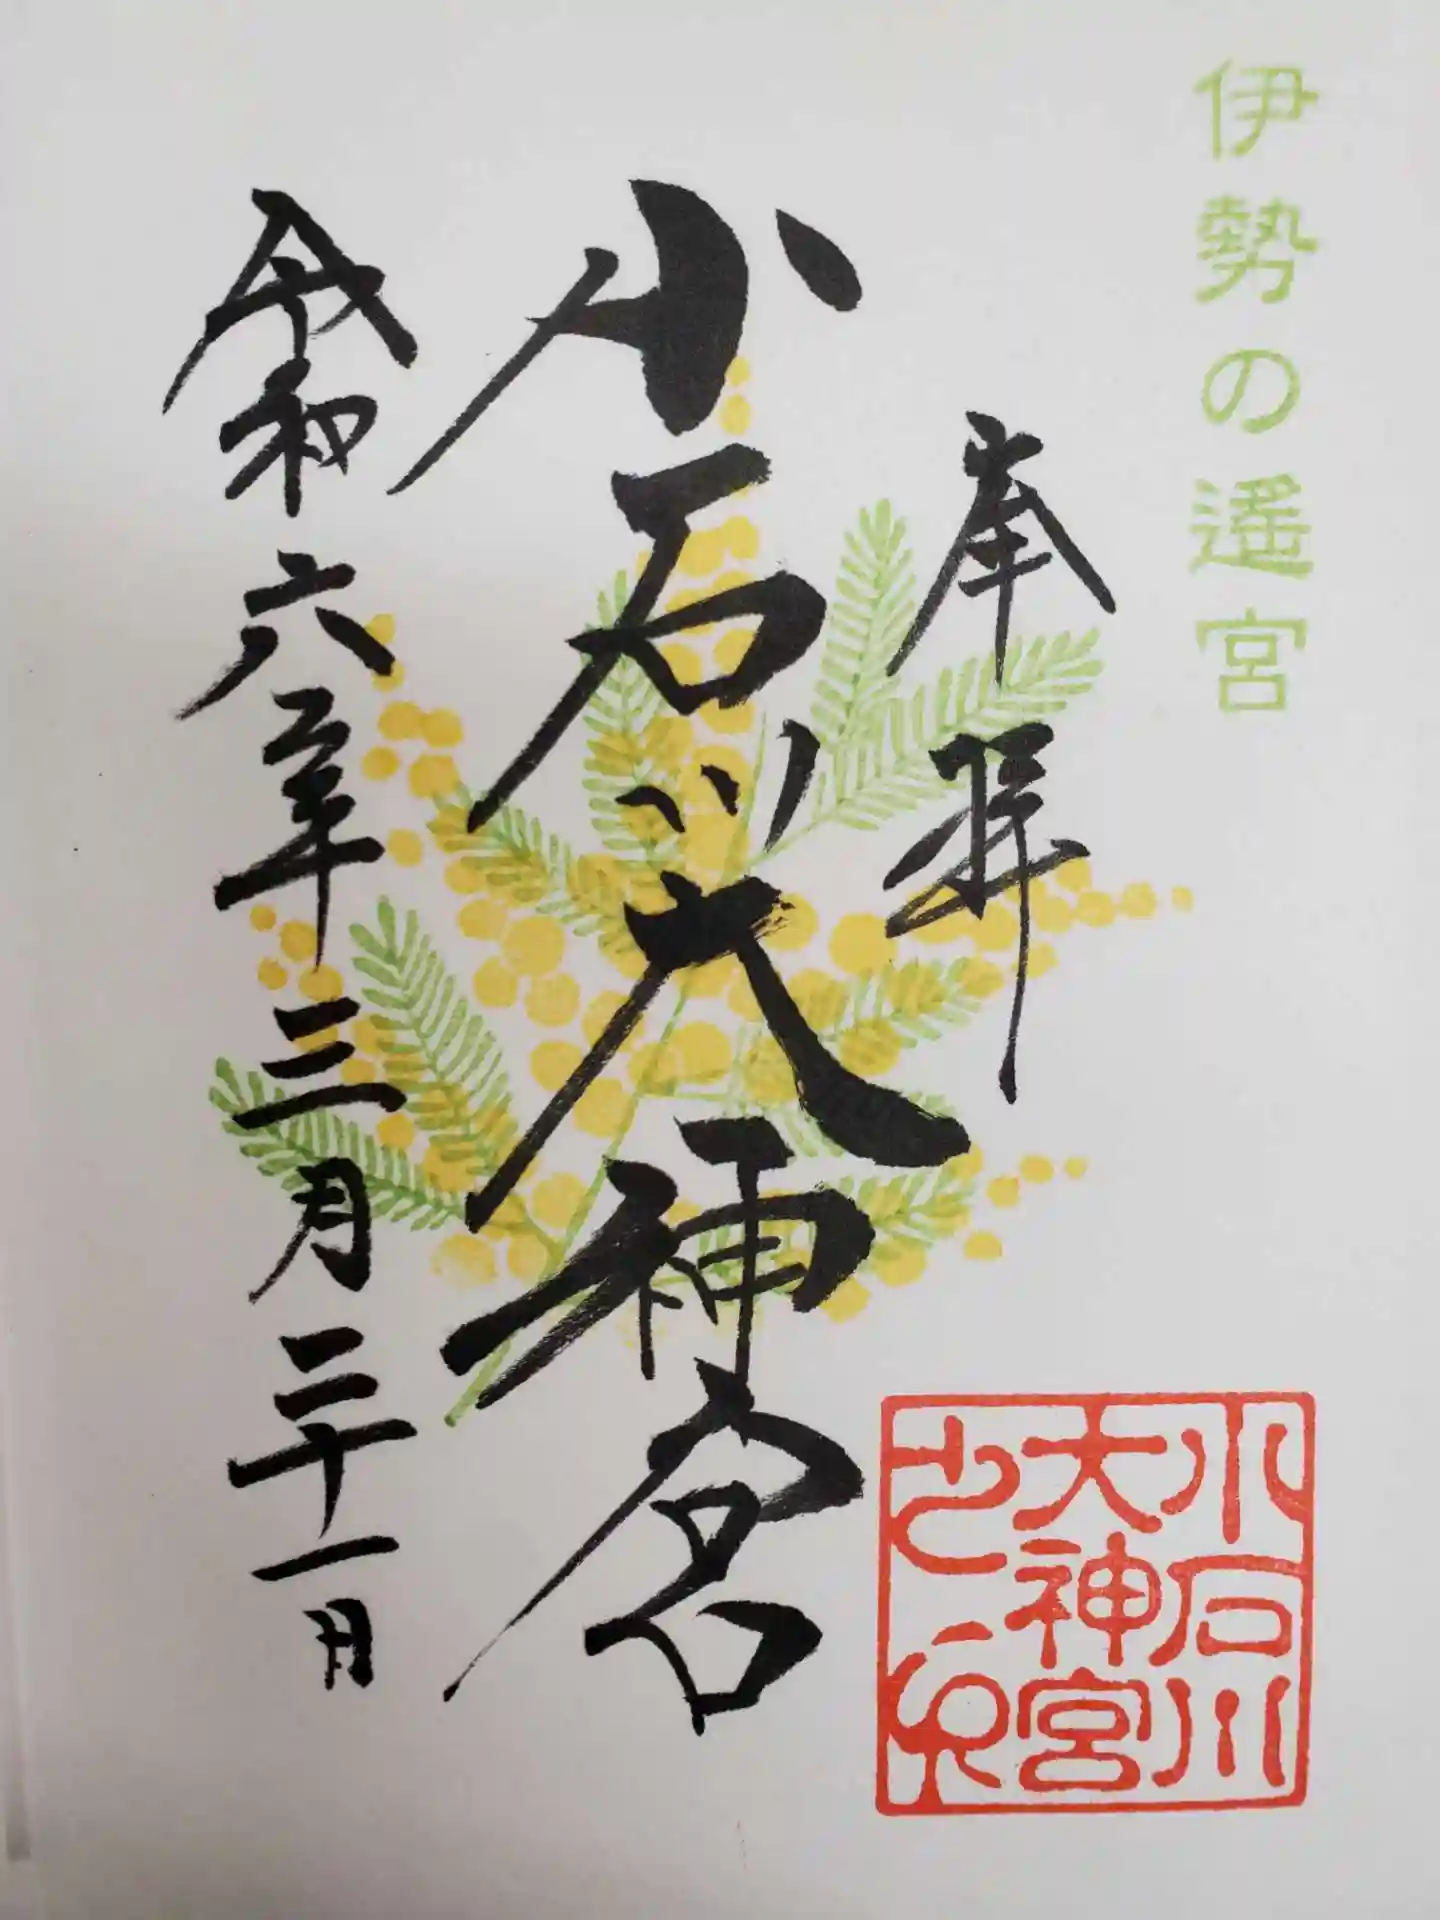 伊勢の遥宮
奉拝
小石川大神宮
令和六年三月二十一日
小石川
大神宮
之印